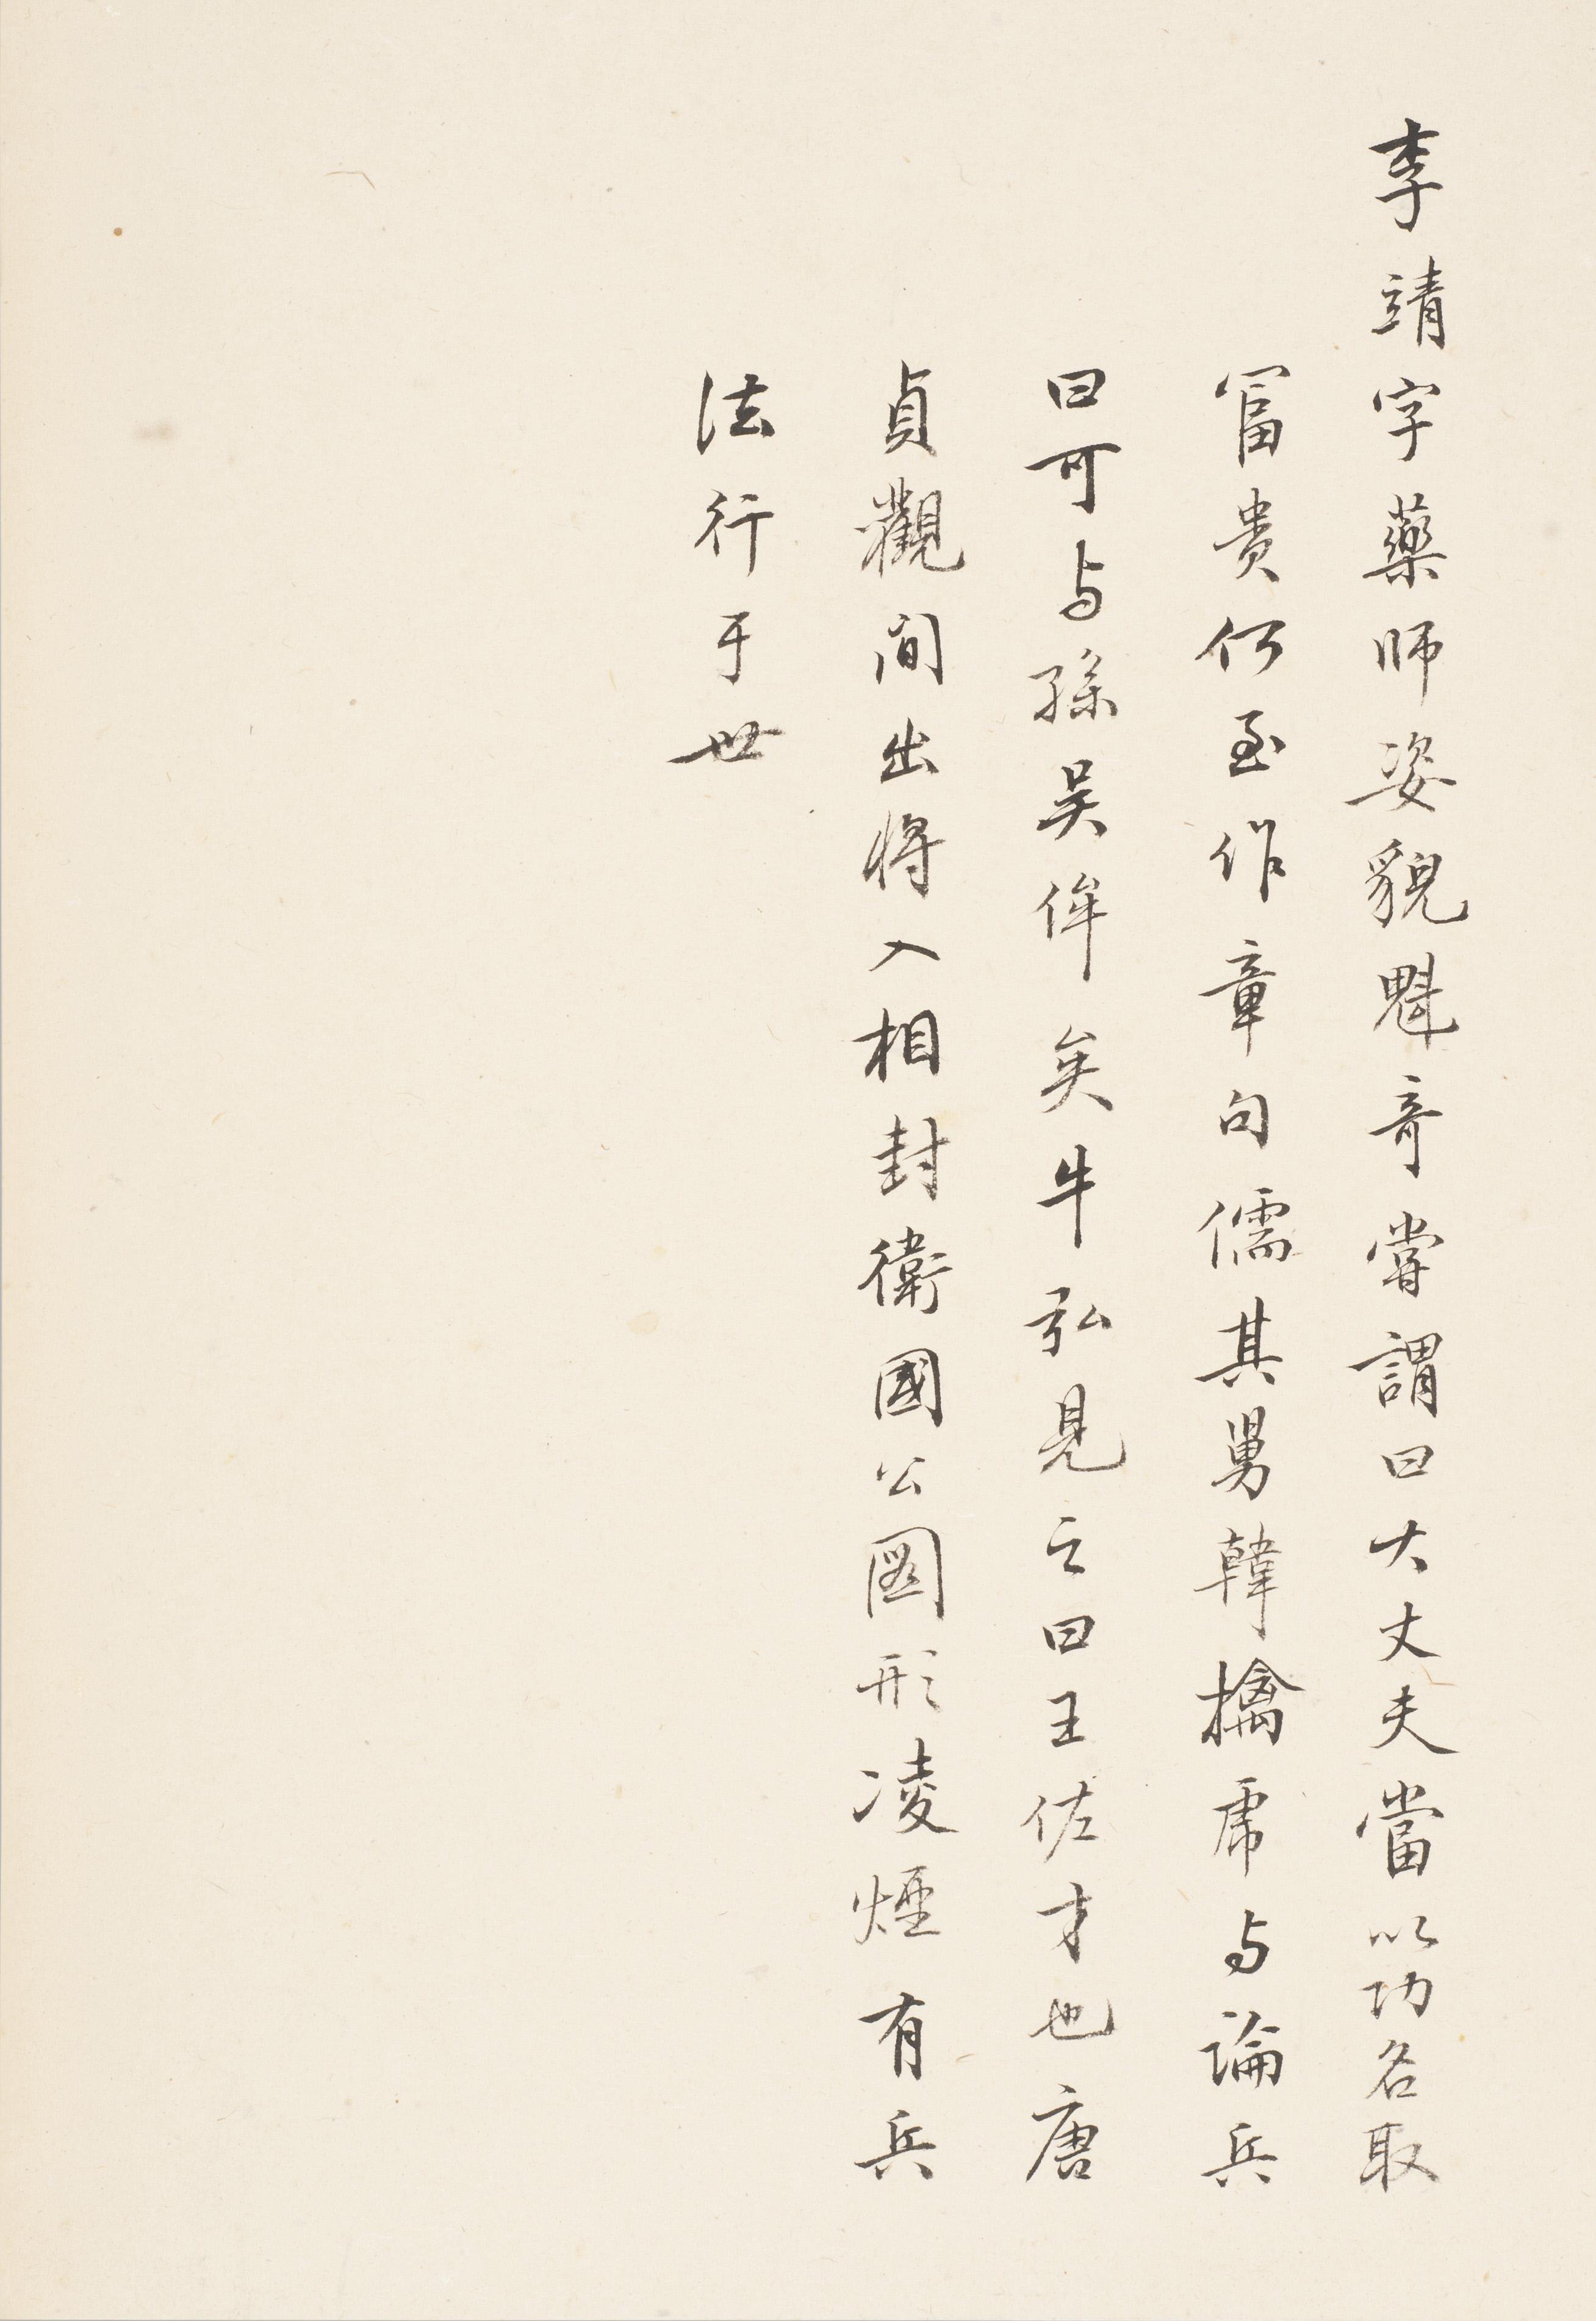 李靖字藥師姿貌魁奇嘗謂曰大丈夫當以功名取
富貴何至作章句儒其舅韓擒虎与論兵
曰可与孫吴侔矣牛弘見之曰王佐才也唐
貞觀間出將入相封衛國公圖形凌煙有兵
法行于世